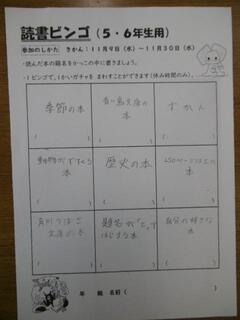 読書ビンゴ（5・6年生用）
参加のしかた　きかん：11月9日（水）～11月30日（水）
・読んだ本の題名をかっこの中に書きましょう。
・1ビンゴで、1かいガチャを まわすことができます（休み時間のみ）。
季節の本
青い鳥文庫の本
ずかん
動物がでてくる本
歴史の本
150ページ以上の本
角川つばさ文庫の本
題名が「と」ではじまる本
自分の好きな本
年　組　名前（　　　）